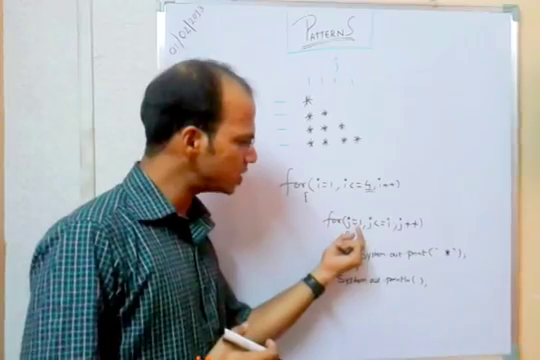 01/02/2013
PATTERNS
j
1 1 1 1
*
* *
* * *
* * * *
for(i=1, i<=4, i++)
{
for(j=1, j<=i, j++)
System.out.print(" *");
System.out.println( );